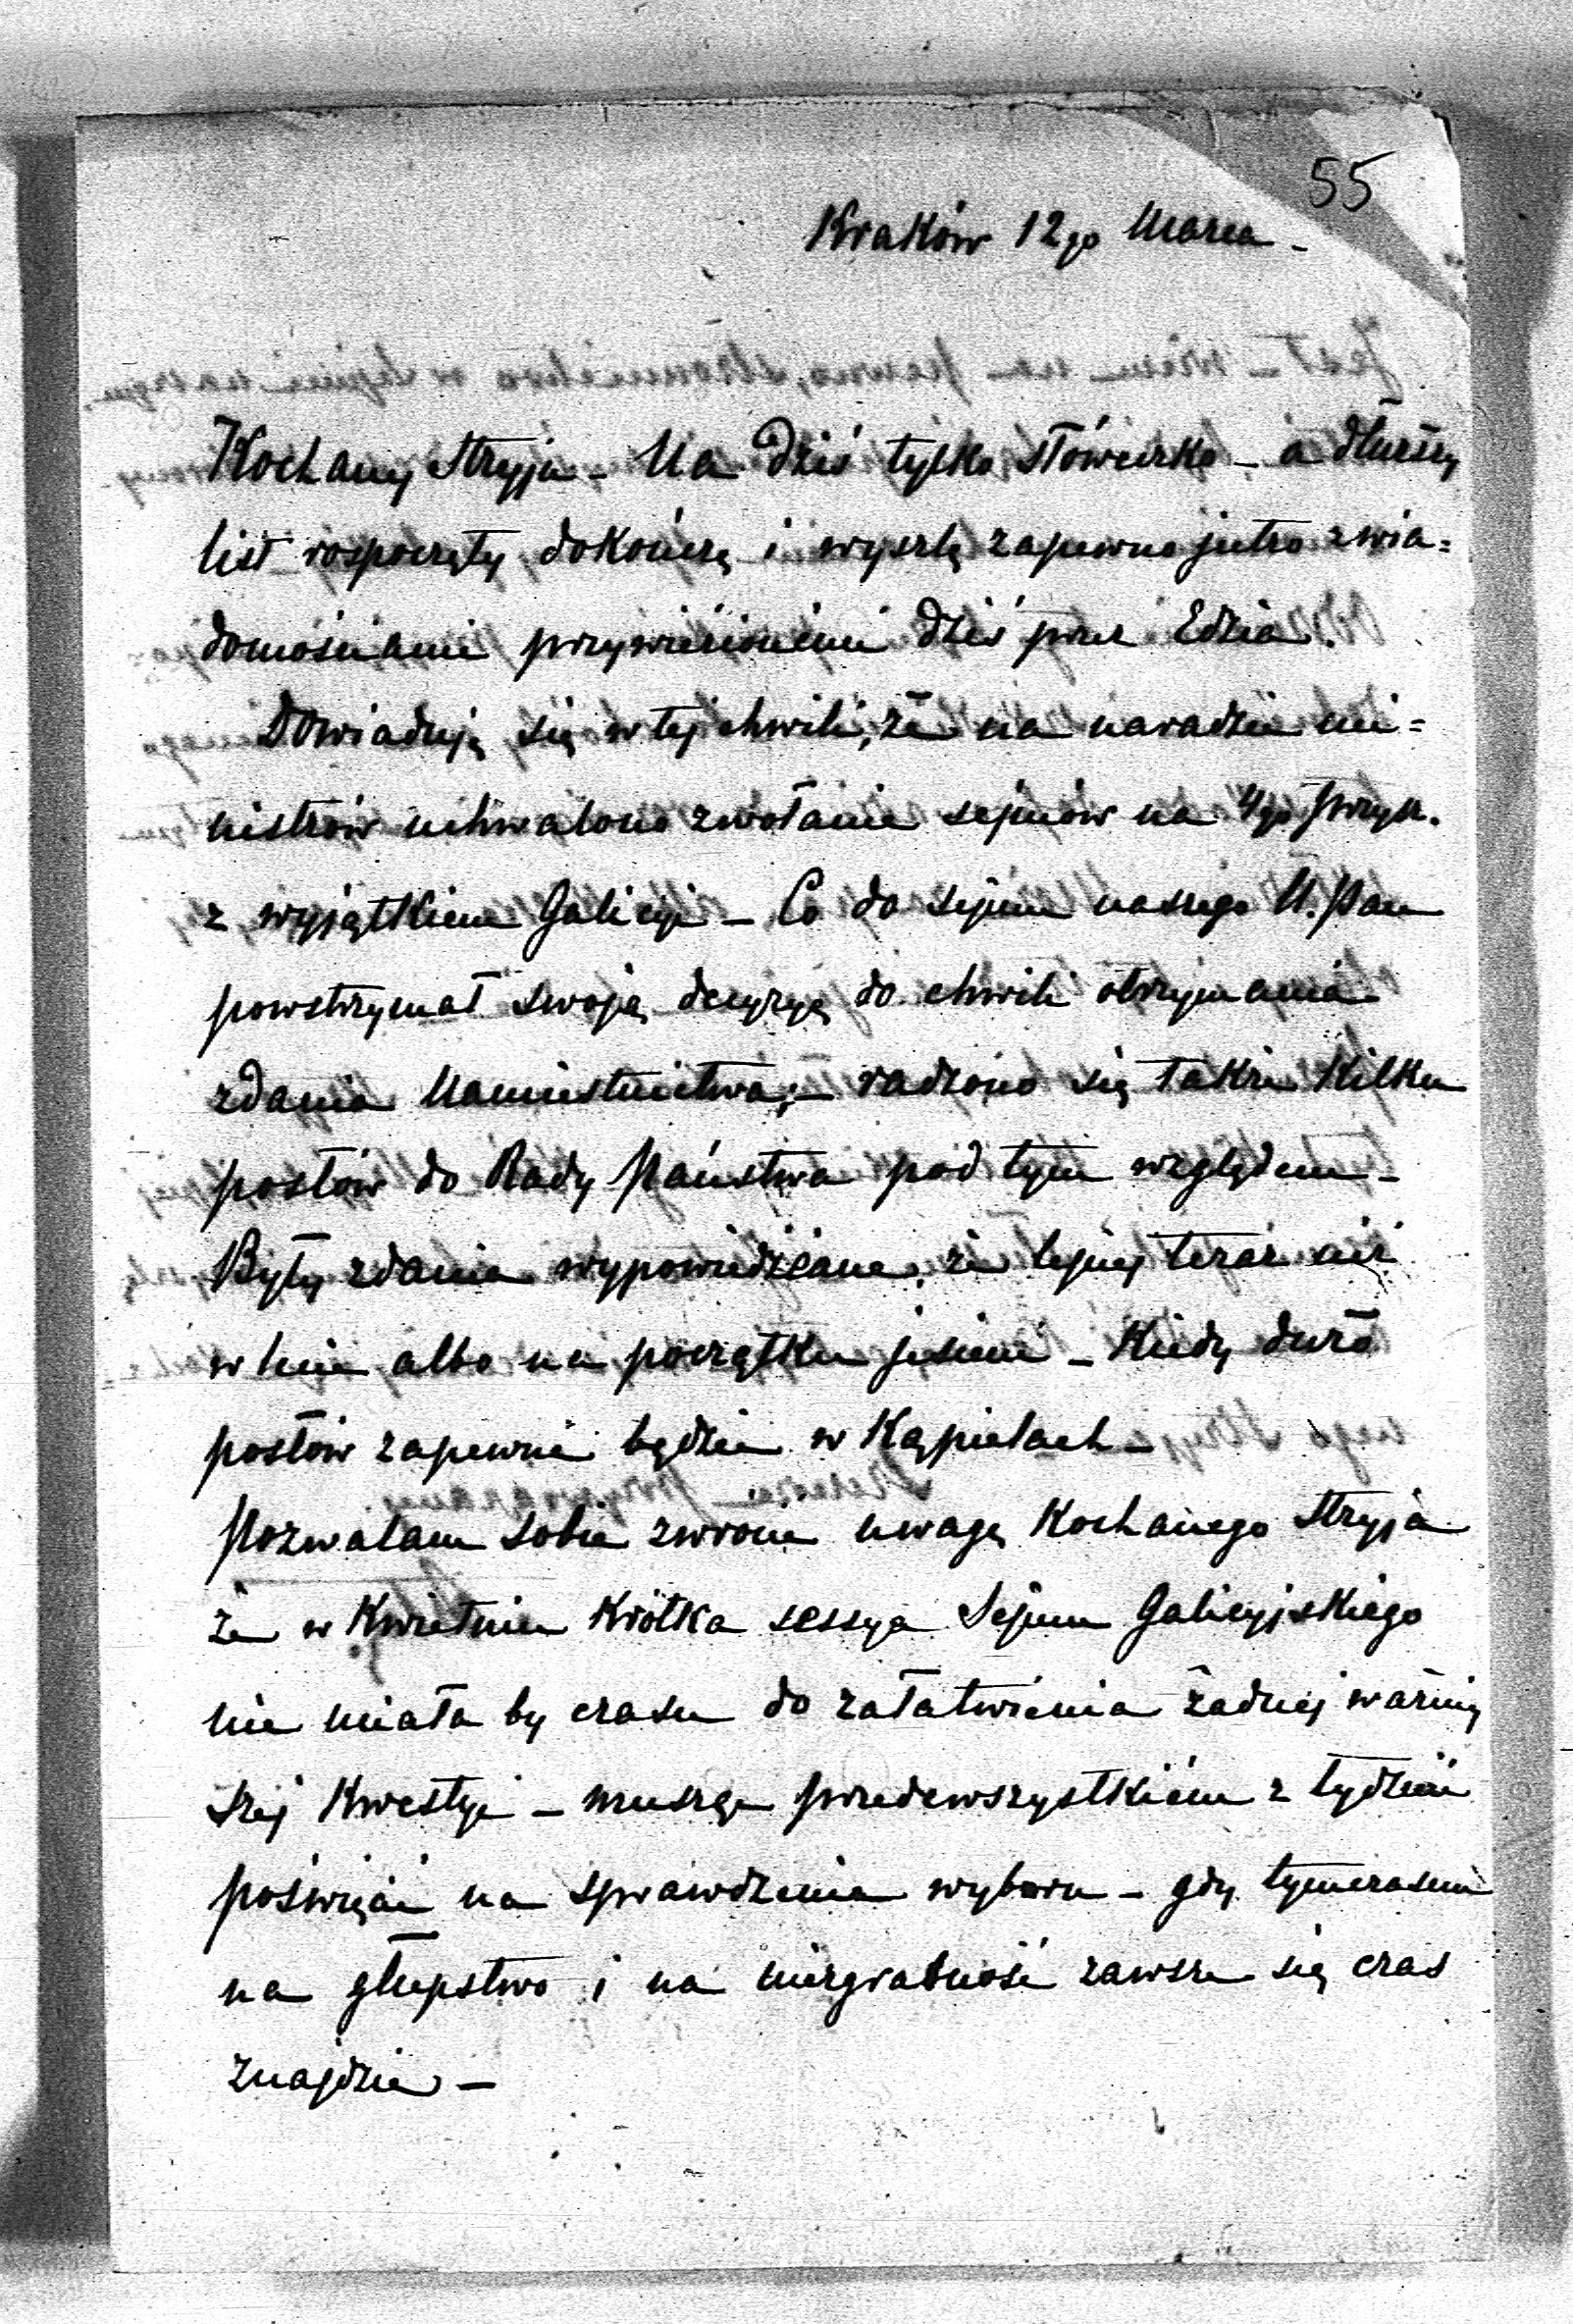 55
Kraków 12go Marca -
Kochany Stryju - Na dziś tylko słóweczko - a dłuższy
list rospoczęty dokończę i wyszlę zapewne jutro z wia=
domościami przywiezionemi dziś przez Edzia.
Dowiaduję się w tej chwili, że na naradzie mi=
nistrów uchwalono zwołanie sejmów na 4go przysz.
z wyjątkiem Galicyi - Co do sejmu naszego N. Pan
powstrzymał swoją decyzyą do chwili otrzymania
zdania Namiestnictwa; - radzono się także kilku
posłów do Rady Państwa pod tym względem -
Były zdania wypowiedziane, że lepiej teraz niż
w lecie albo na początku jesieni - kiedy dużo
posłów zapewne będzie w kąpielach -
Pozwalam sobie zwrócić uwagę kochanego Stryja
że w kwietniu krótka sessya Sejmu Galicyjskiego
nie miała by czasu do załatwienia żadnej ważniej
szej kwestyi - muszą przedewszystkiém z tydzień
poświęcić na sprawdzenia wyboru - gdy tymczasem
na głupstwo i na niezgrabność zawsze się czas
znajdzie -